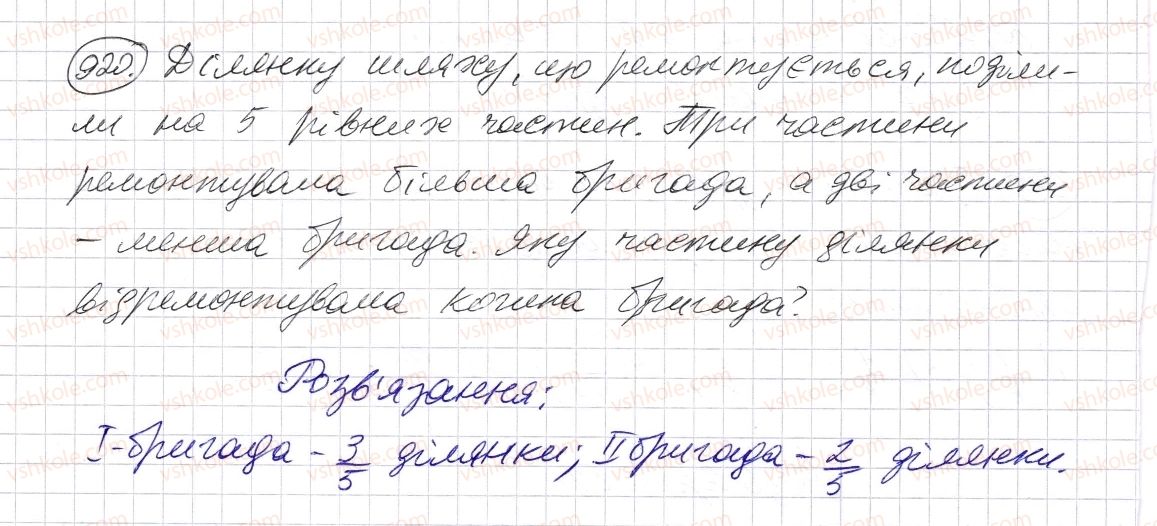 920. Ділянку шляху, що ремонтується, поділи-
ли на 5 рівних частин. Три частини
ремонтувала більша бригада, а дві частини
– менша бригада. Яку частину ділянки
відремонтувала кожна бригада?
Розв'язання:
I-бригада - 3/5 ділянки; II бригада - 2/5 ділянки.